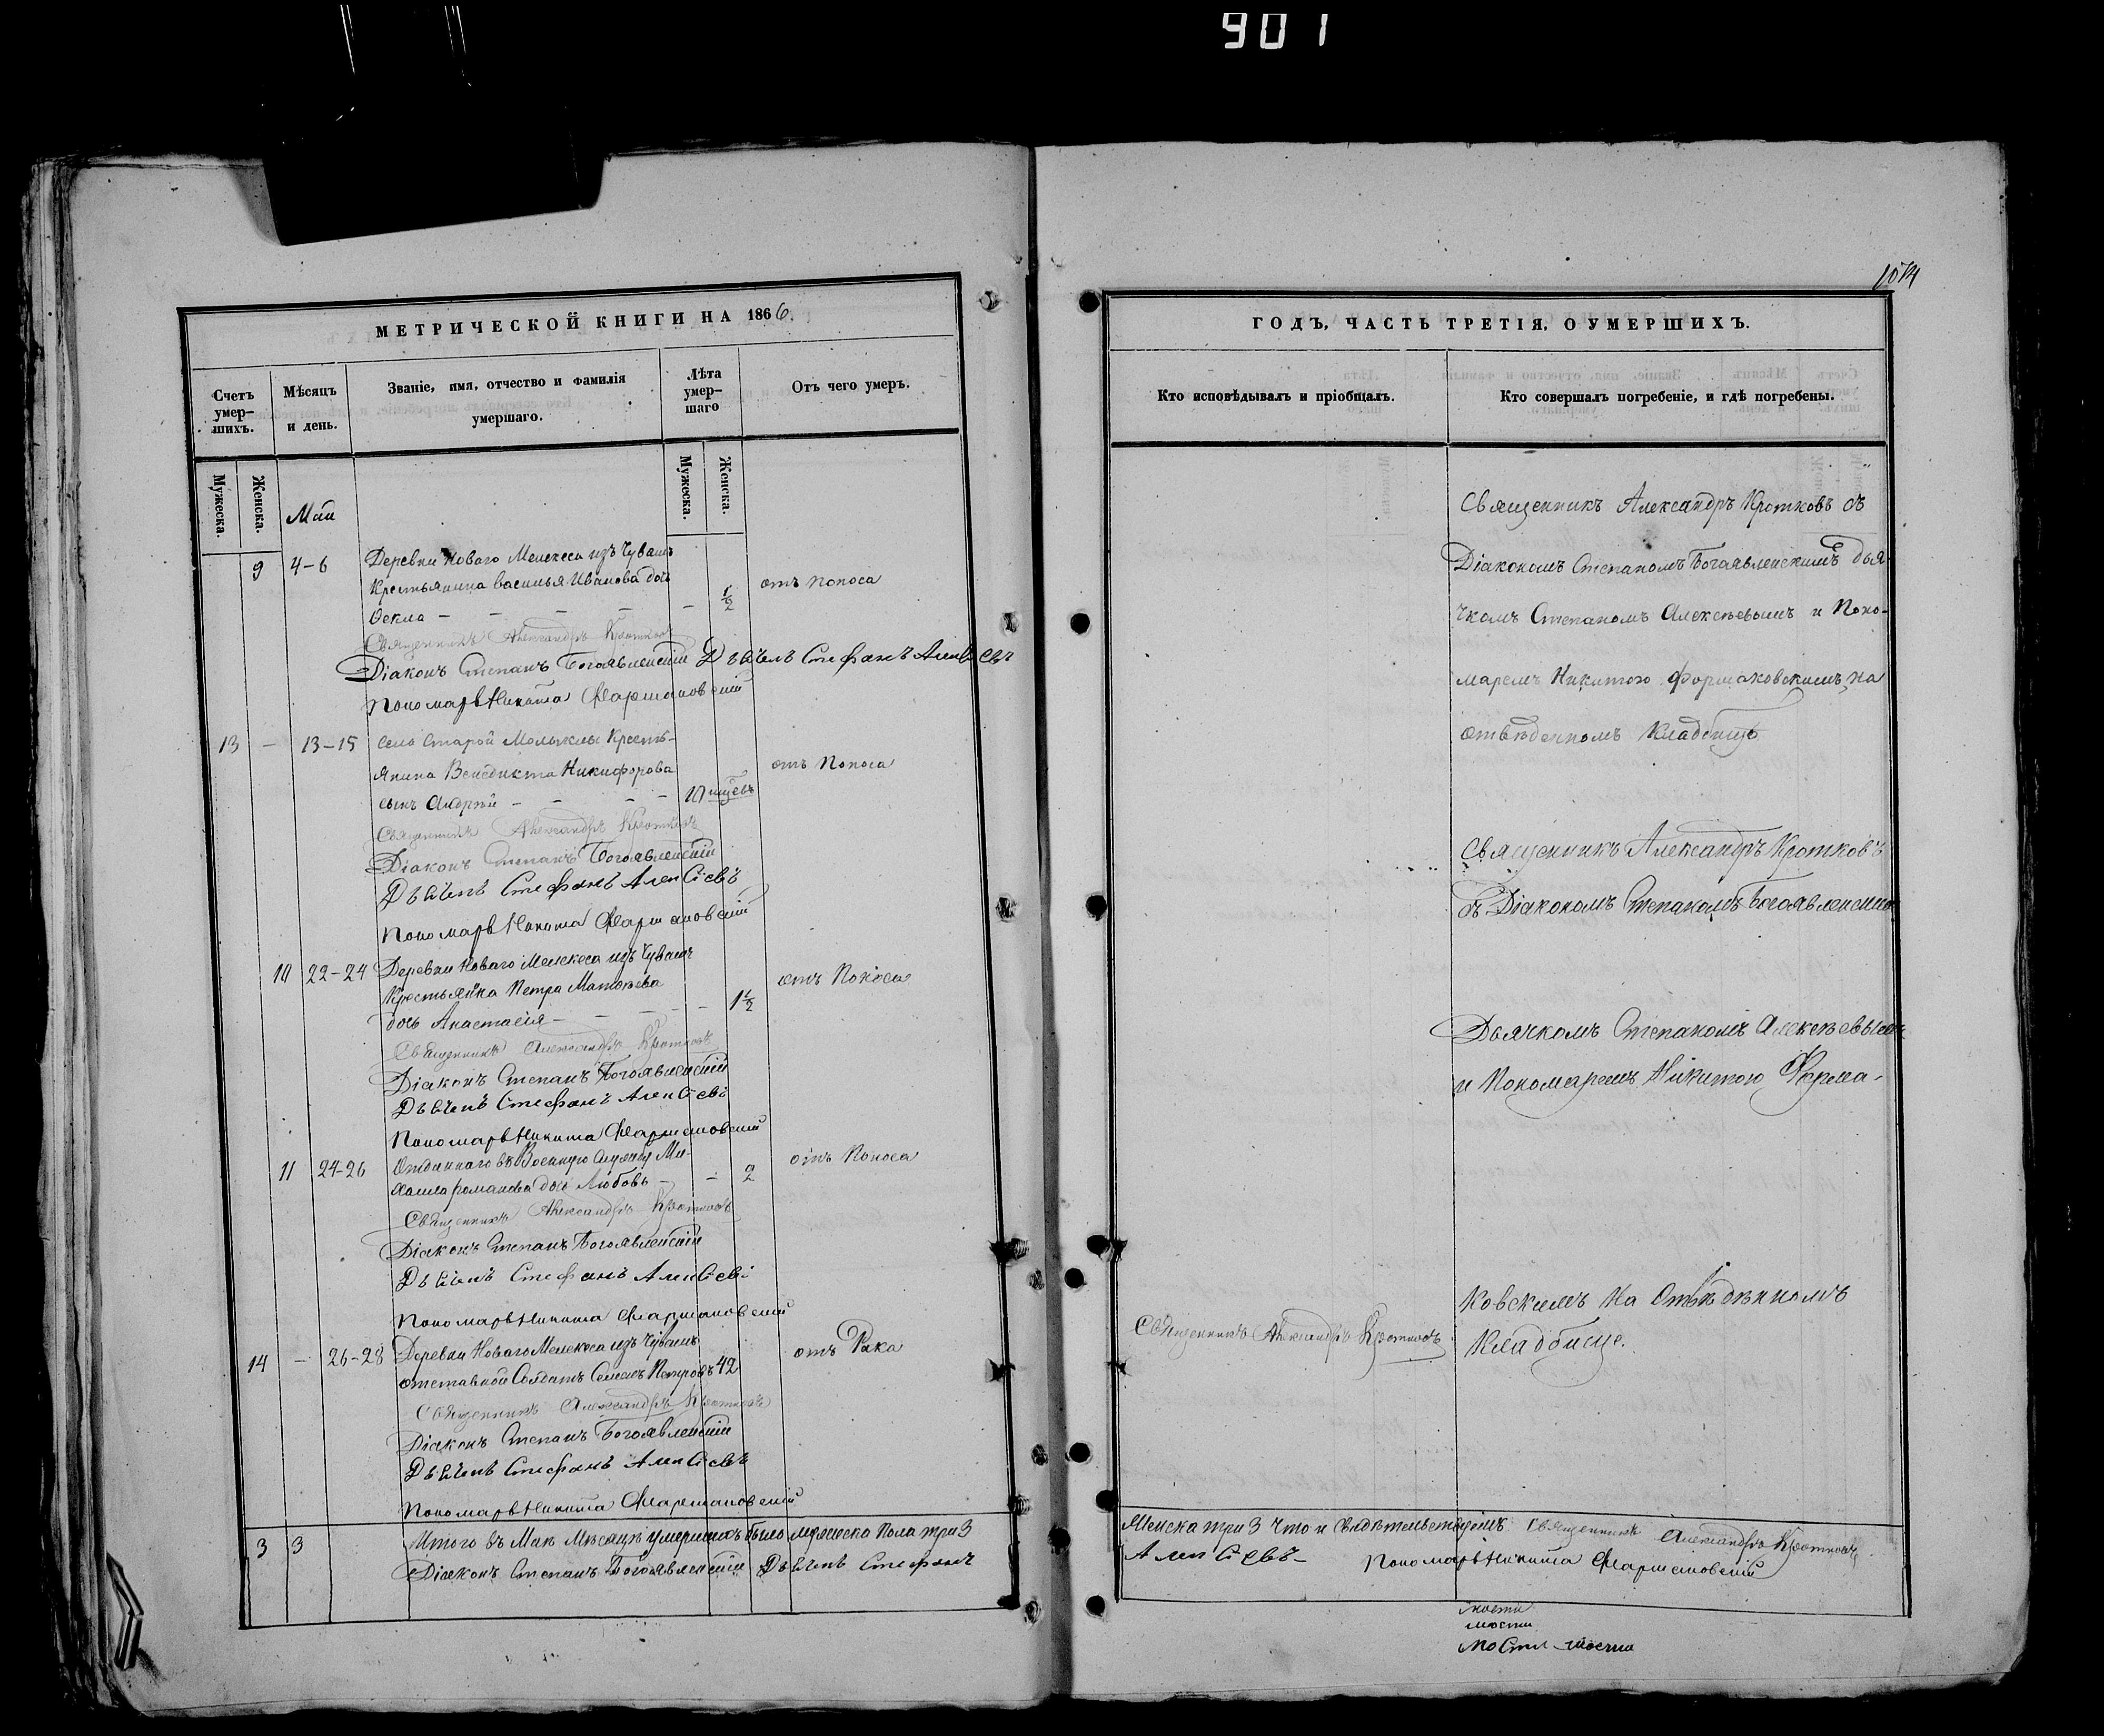 901
1074
МЕТРИЧЕСКОЙ КНИГИ НА 1866.
Счетъ умер-шихъ.
Мѣсяцъ и день.
Званіе, имя, отчество и фамилія умершаго.
Лѣта умер-шаго
Отъ чего умеръ.
Мужеска.
Женска.
Мужеска.
Женска.
Маи
9 4-6 Деревни Новаго Мелекеса изъ Чувашъ
Крестьянина Василья Иванова дочь
Ѳекла — — — — — 1/2 отъ поноса
Священникъ Александръ Кротковъ
Діаконъ Степанъ Богоявленскій Дьячекъ Стефанъ Алексіевъ
Пономарь Никита Фармаковскій
13 — 13-15 Села Старой Мальклы Кресть-
янина Венедикта Никифорова
сынъ Андрей — — — — 10 мѣсᵉвъ отъ Поноса
Священникъ Александръ Кротковъ
Діаконъ Степанъ Богоявленскій
Дьячекъ Стефанъ Алексіевъ
Пономарь Никита Фармаковскій
10 22-24 Деревни Новаго Мелекеса изъ Чувашъ
Крестьянина Петра Матвѣева
дочь Анастасія — — — — — 1 1/2 отъ Поноса
Священникъ Александръ Кротковъ
Діаконъ Степанъ Богоявленскій
Дьячекъ Стефанъ Алексіевъ
Пономарь Никита Фармаковскій
11 24-26 Отданнаго въ Военную Службу Ми-
хаила Романова дочь Любовь — — 2 отъ Поноса
Священникъ Александръ Кротковъ
Діаконъ Степанъ Богоявленскій
Дьячекъ Стефанъ Алексіевъ
Пономарь Никита Фармаковскій
14 — 26-28 Деревни Новаго Мелекеса изъ Чувашъ
отставной Солдатъ Семенъ Петровъ 42 отъ Рака
Священникъ Александръ Кротковъ
Діаконъ Степанъ Богоявленскій
Дьячекъ Стефанъ Алексіевъ
Пономарь Никита Фармаковскій
3 3 Итого въ Маѣ Мѣсяцѣ умершихъ было мужеска пола три 3
Діаконъ Степанъ Богоявленскій Дьячекъ Стефанъ
ГОДЪ, ЧАСТЬ ТРЕТІЯ, О УМЕРШИХЪ.
Кто исповѣдывалъ и пріобщалъ.
Кто совершалъ погребеніе, и гдѣ погребены.
Священникъ Александръ Кротковъ съ
Діакономъ Степаномъ Богоявленскимъ дья-
чкомъ Степаномъ Алексѣевымъ и Поно-
маремъ Никитою Формаковскимъ, на
отвѣденномъ Кладбищѣ
Священникъ Александръ Кротковъ
съ Діакономъ Степаномъ Богоявленским
Дьячкомъ Степаномъ Алексѣевымъ
и Пономаремъ Никитою Ферма-
ковскимъ на отвѣдѣнномъ
Священникъ Александръ Кротковъ
Кладбище.
Женска три 3 Что и свидѣтельствуемъ Священникъ Александръ Кротковъ
Алексіевъ — Пономарь Никита Фармаковскій